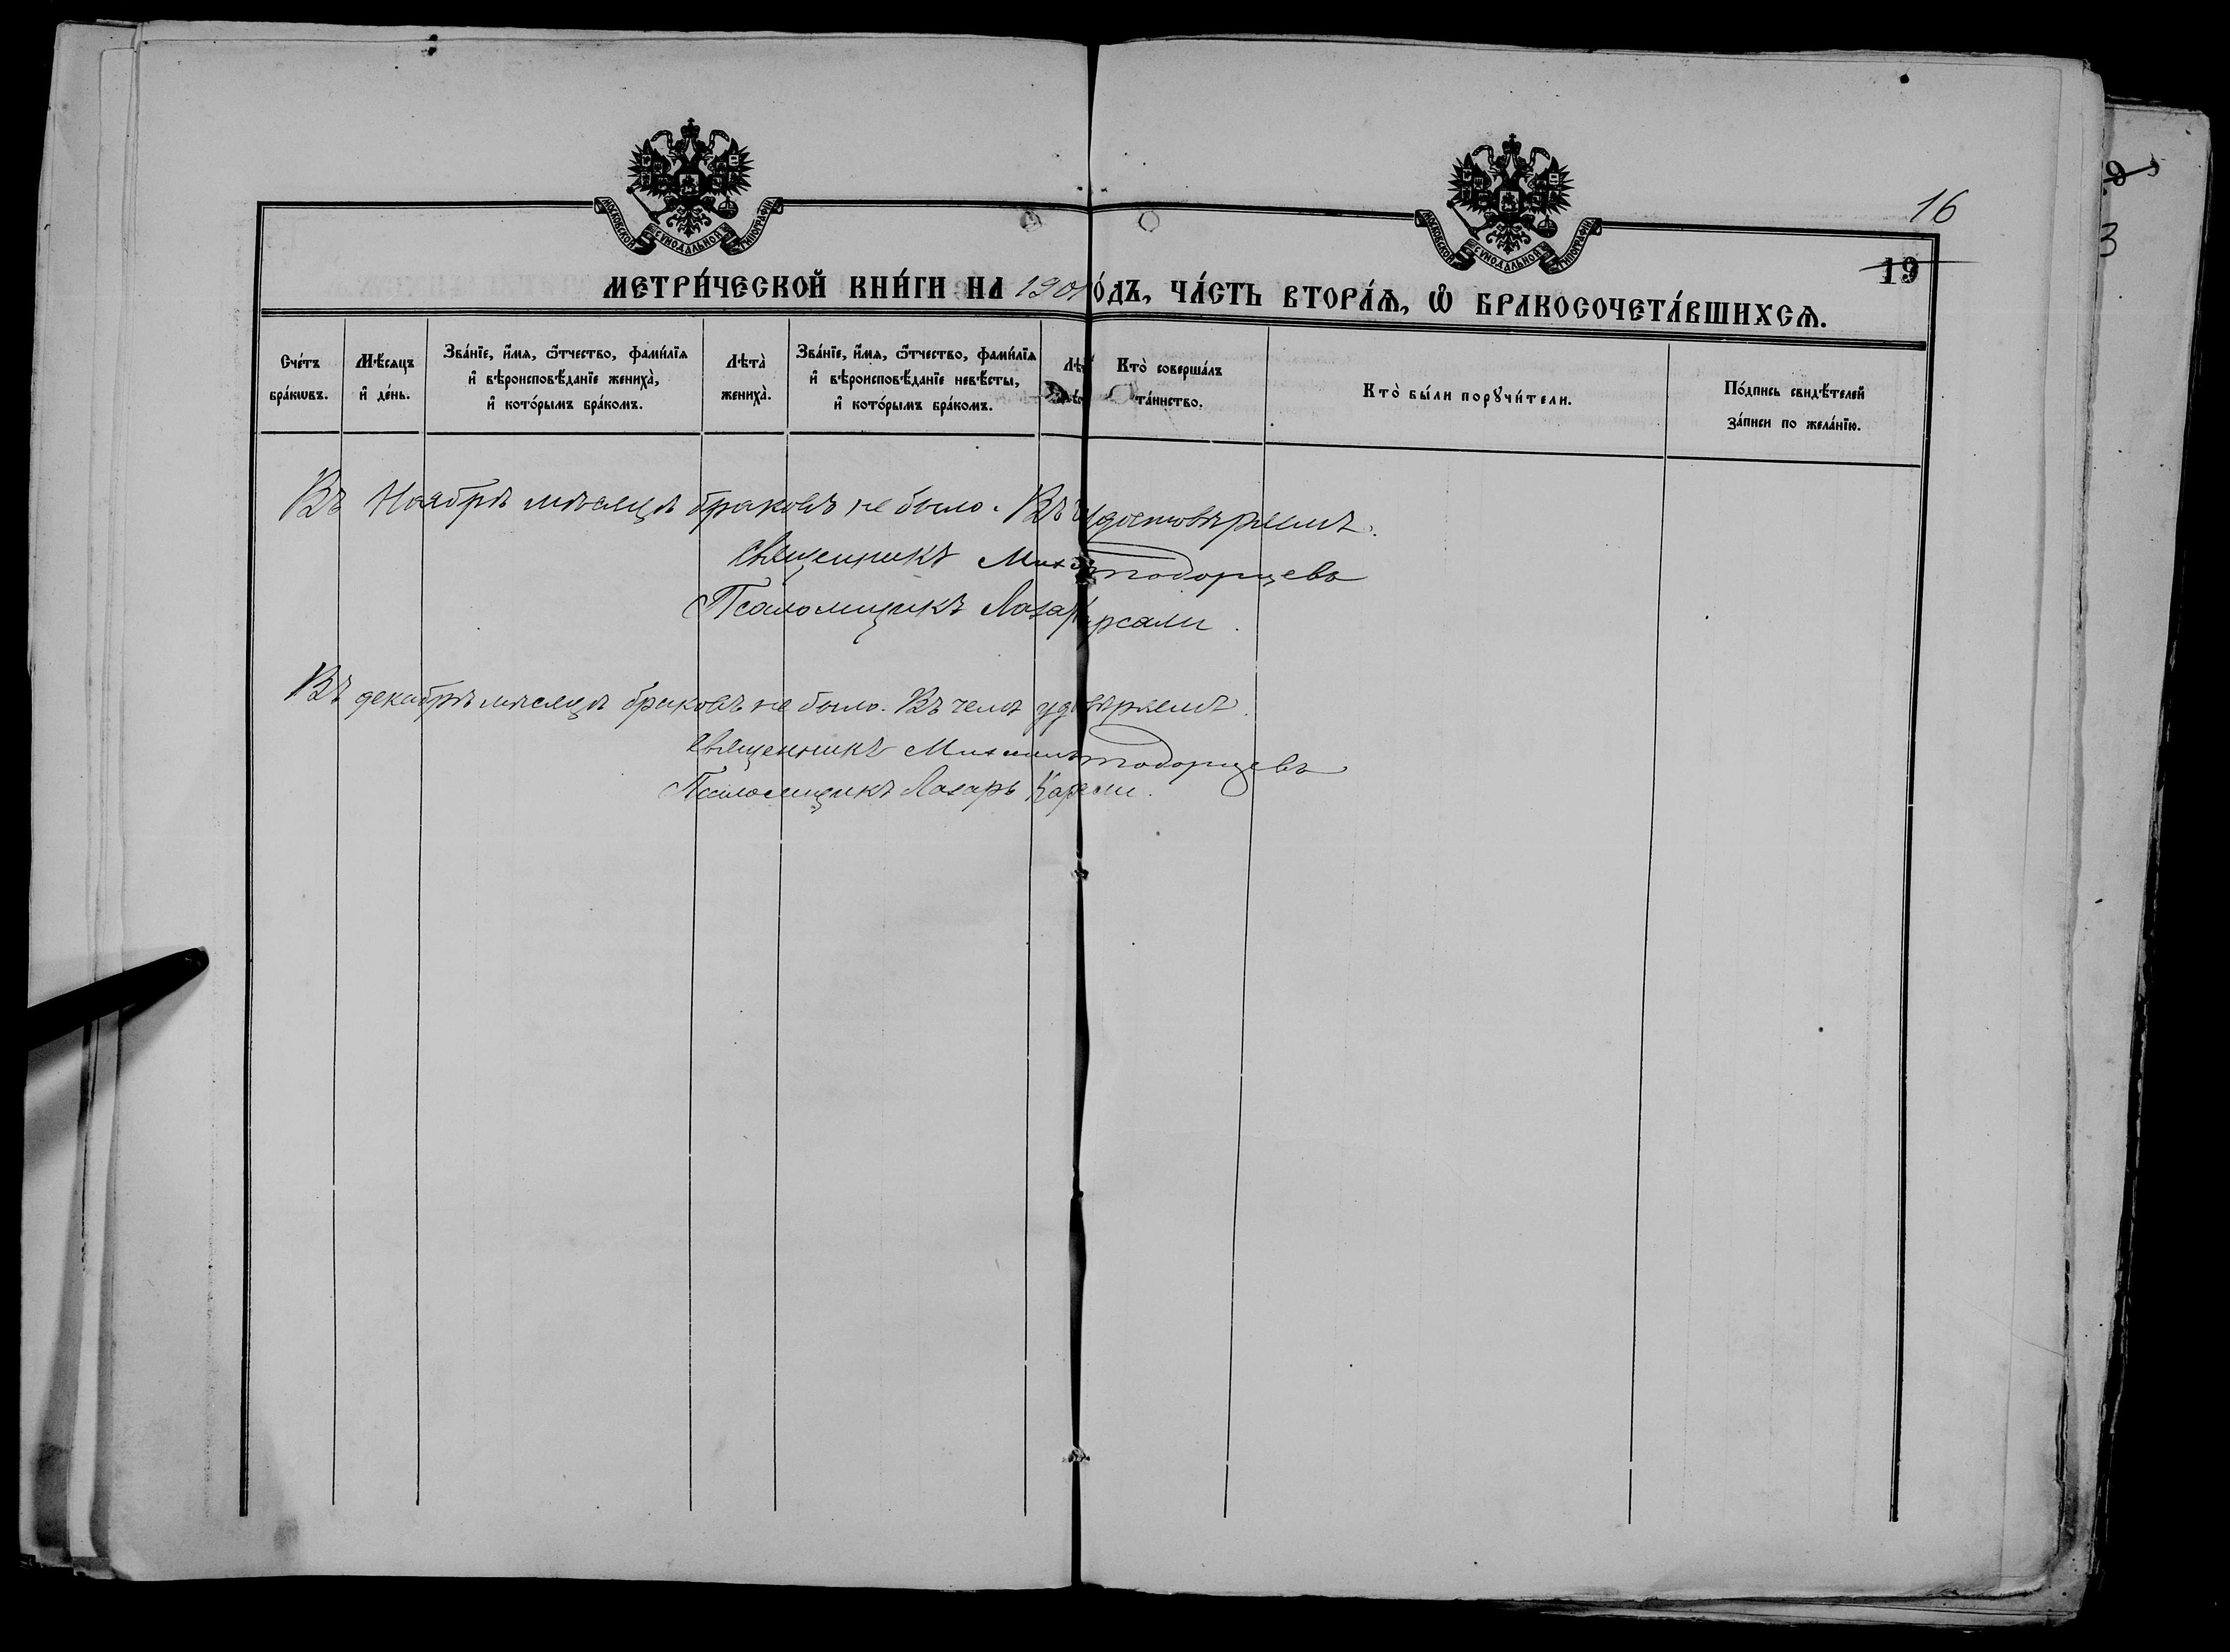 16
19
МОСКОВСКОЙ СѴНОДАЛЬНОЙ ТИПОГРАФІИ
МОСКОВСКОЙ СѴНОДАЛЬНОЙ ТИПОГРАФІИ
МЕТРИ́ЧЕСКОЙ КНИ́ГИ НА 1901 О́ДЪ, ЧА́СТЬ ВТОРА́Ѧ, Ѽ БРАКОСОЧЕТА́ВШИХСѦ.
Сче́тъ бра́кѡвъ.
Мѣ́сяцъ и҆ де́нь.
Зва́нїе, и҆́мя, ѻ҆́тчество, фами́лїя и҆ вѣроисповѣ́данїе жениха̀, и҆ кото́рымъ бра́комъ.
Лѣта̀ жениха̀.
Зва́нїе, и҆́мя, ѻ҆́тчество, фами́лїя и҆ вѣроисповѣ́данїе невѣ́сты, и҆ кото́рымъ бра́комъ.
Кто̀ соверша́лъ та́инство.
Кто̀ бы́ли порꙋчи́тели.
По́дпись свидѣ́телей за́писи по жела́нїю.
Въ Ноябрѣ мѣсяцѣ браковъ не было. Въ удостовѣряемъ.
Священникъ
Псаломщикъ
Въ декабрѣ мѣсяцѣ браковъ не было. Въ чемъ
Священникъ Михаилъ
Псаломщикъ Лазарь